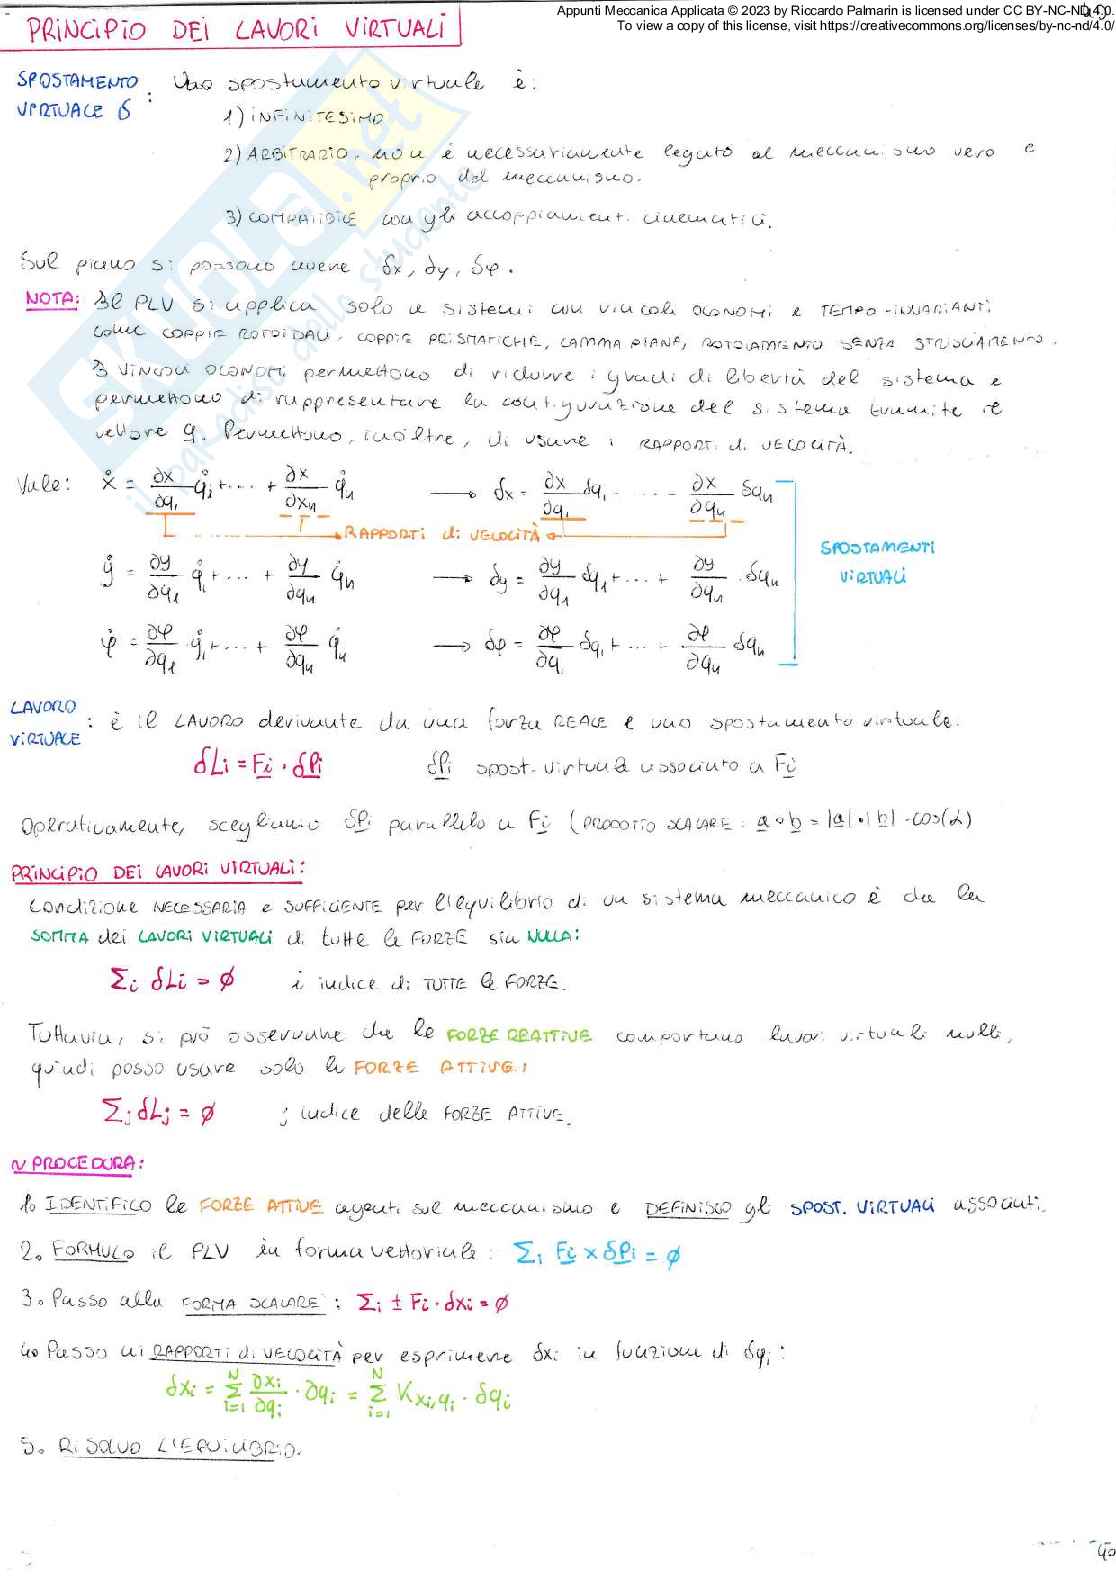 Appunti Meccanica Applicata © 2023 by Riccardo Palmarin is licensed under CC BY-NC-ND 4.0.
To view a copy of this license, visit https://creativecommons.org/licenses/by-nc-nd/4.0/
PRINCIPIO DEI LAVORI VIRTUALI
SPOSTAMENTO VIRTUALE δ : Uno spostamento virtuale è:
1) INFINITESIMO
2) ARBITRARIO, non è necessariamente legato al meccanismo vero e
proprio del meccanismo.
3) COMPATIBILE con gli accoppiamenti cinematici.
Sul piano si possono avere δx, δy, δφ.
NOTA: Il PLV si applica solo a sistemi con vincoli OLONOMI e TEMPO-INVARIANTI
come COPPIE ROTOIDALI, COPPIE PRISMATICHE, CAMMA PIANA, ROTOLAMENTO SENZA STRISCIAMENTO.
I VINCOLI OLONOMI permettono di ridurre i gradi di libertà del sistema e
permettono di rappresentare la configurazione del sistema tramite il
vettore q. Permettono, inoltre, di usare i RAPPORTI di VELOCITÀ.
Vale: ẋ = ∂x/∂q₁ q̇₁ + ... + ∂x/∂xₙ q̇₁ → δx = ∂x/∂q₁ δq₁ ... ∂x/∂qₙ δqₙ
RAPPORTI di VELOCITÀ
ẏ = ∂y/∂q₁ q̇₁ + ... + ∂y/∂qₙ q̇ₙ → δy = ∂y/∂q₁ δq₁ + ... ∂y/∂qₙ · δqₙ
SPOSTAMENTI
VIRTUALI
φ̇ = ∂φ/∂q₁ · q̇₁ + ... + ∂φ/∂qₙ q̇ₙ → δφ = ∂φ/∂q δq₁ + ... ∂φ/∂qₙ δqₙ
LAVORO VIRTUALE : è il LAVORO derivante da una forza REALE e uno spostamento virtuale.
δLi = Fi · δPi δPi spost. virtuale associato a Fi
Operativamente, scegliamo δPi parallelo a Fi (PRODOTTO SCALARE: a · b = |a| · |b| · cos(α)
PRINCIPIO DEI LAVORI VIRTUALI:
Condizione NECESSARIA e SUFFICIENTE per l'equilibrio di un sistema meccanico è che la
SOMMA dei LAVORI VIRTUALI di tutte le FORZE sia NULLA:
Σi δLi = ∅ i indice di TUTTE le FORZE.
Tuttavia, si può osservare che le FORZE REATTIVE comportano lavori virtuali nulli,
quindi posso usare solo le FORZE ATTIVE:
Σj δLj = ∅ j indice delle FORZE ATTIVE.
PROCEDURA:
1. IDENTIFICO le FORZE ATTIVE agenti sul meccanismo e DEFINISCO gli SPOST. VIRTUALI associati.
2. FORMULO il PLV in forma vettoriale: Σi Fi × δPi = ∅
3. Passo alla FORMA SCALARE: Σi ± Fi · δxi = ∅
4. Passo ai RAPPORTI di VELOCITÀ per esprimere δxi in funzioni di δqi:
δxi = Σ(i=1..N) ∂xi/∂qi · ∂qi = Σ(i=1..N) Kxi,qi · δqi
5. RISOLVO L'EQUILIBRIO.
40